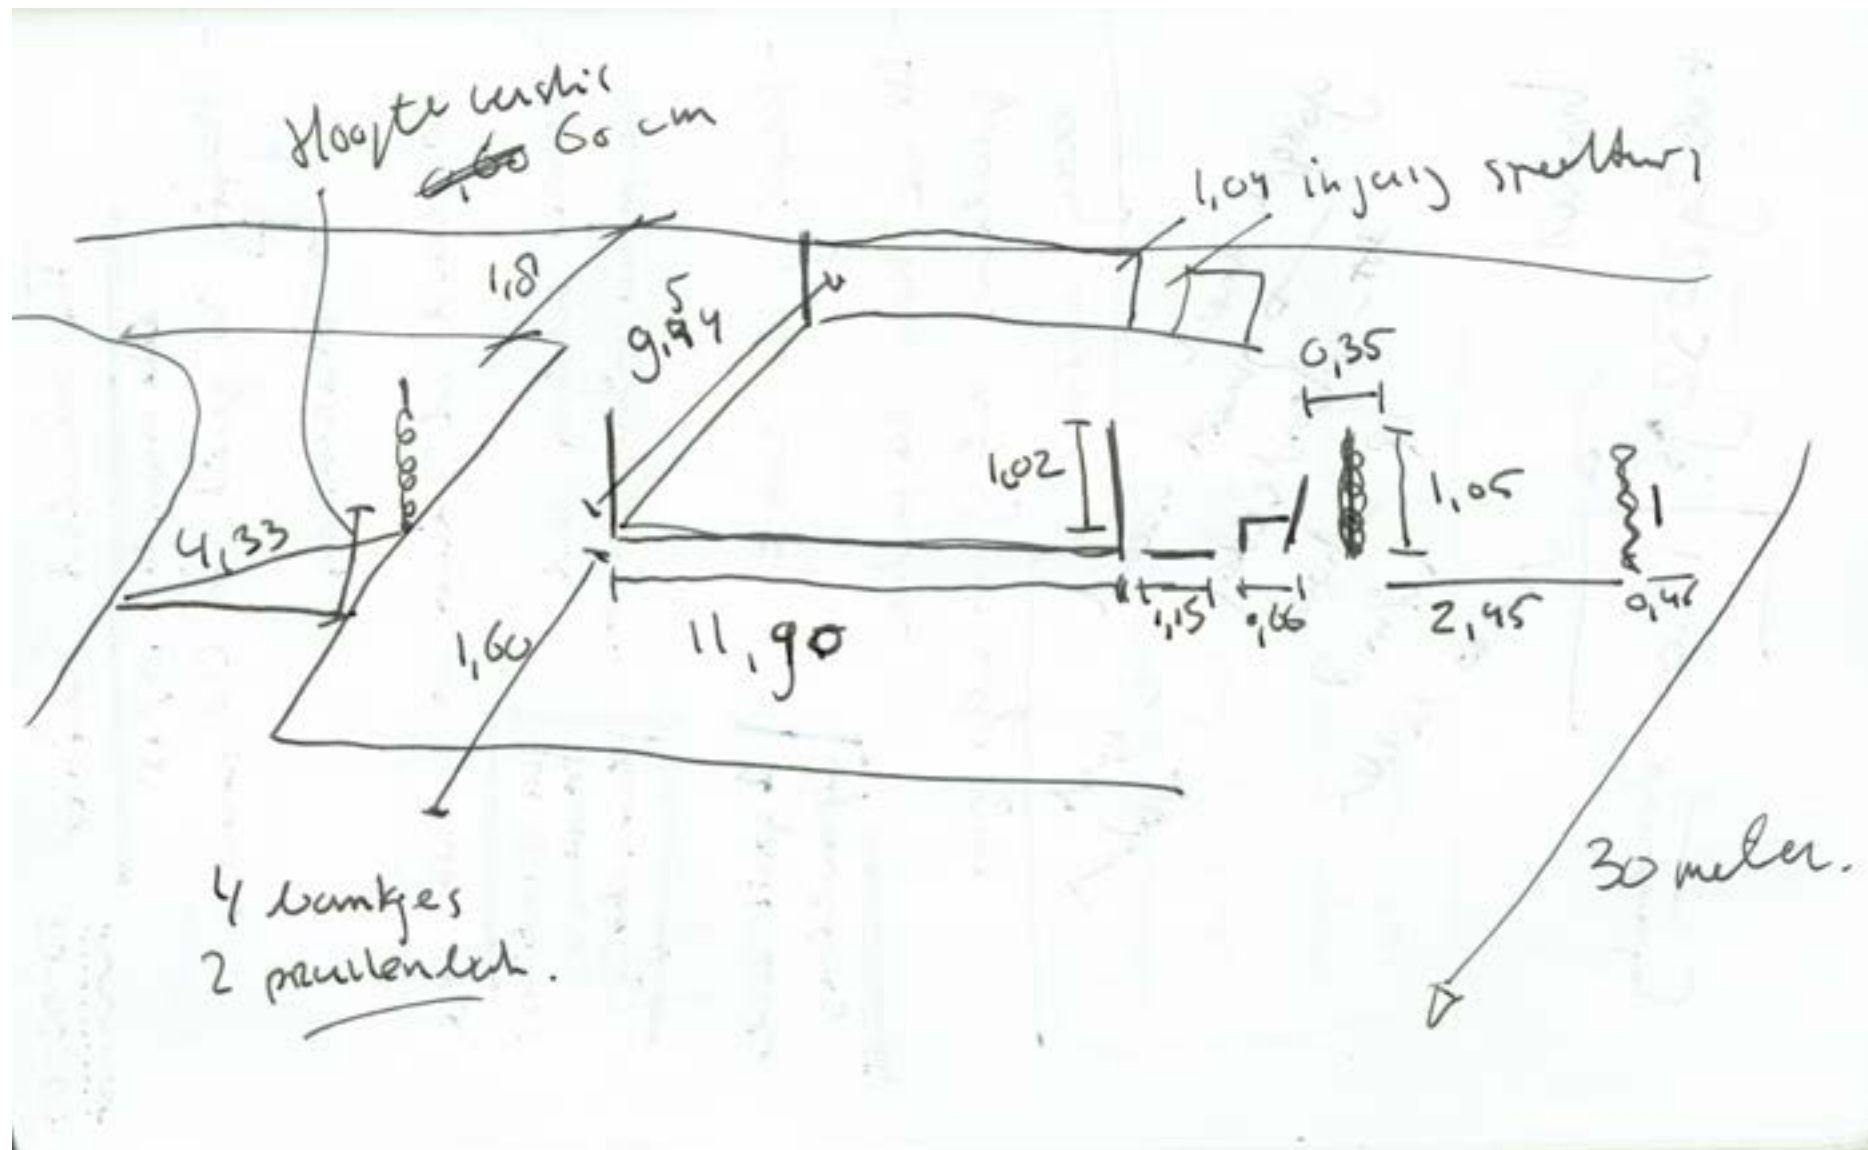 Hoogte verschil
0,60 60 cm
1,04 ingang speeltuin
1,8
5
9,44
0,35
1,02
1,05
4,33
1,60
11,90
1,15
0,66
2,45
0,45
30 meter.
4 bankjes
2 prullenbak.